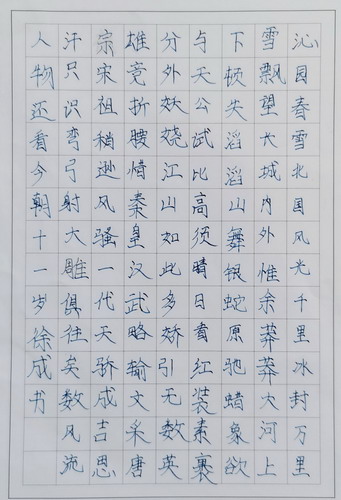 沁园春雪北国风光千里冰封万里
雪飘望长城内外惟余莽莽大河上
下顿失滔滔山舞银蛇原驰蜡象欲
与天公试比高须晴日看红装素裹
分外妖娆江山如此多娇引无数英
雄竞折腰惜秦皇汉武略输文采唐
宗宋祖稍逊风骚一代天骄成吉思
汗只识弯弓射大雕俱往矣数风流
人物还看今朝十一岁徐成书